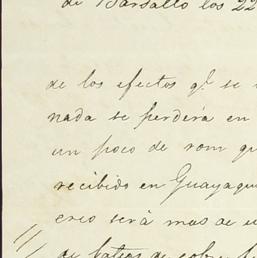 de Barsallo los 22
de los efectos qe. se
nada se perderá en
un poco de rom qu
recibido en Guayaqui
creo será mas de u
de bateas de cobre